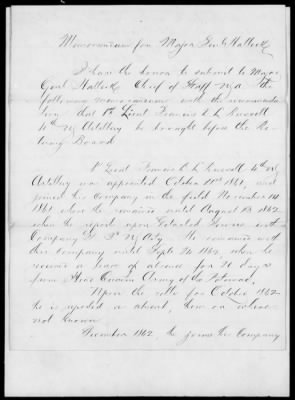 Memorandum for Major Genl Halleck
I have the honor to submit to Major
Genl Halleck Chief of Staff USA the
following memorandum with the recommenda
tion that 1st Lieut Francis L L
4th US Artillery be brought before the Re
tiring Board
1st Lieut Francis L L 4th US
Artillery was appointed October 1861, and
joined his Company in the field November 14
1861 where he remained until August 13 1862
when he upon Detached Service with
Company 3d US Arty. He remained with
this Company until Sept 26 1862, when he
received a leave of absence for 21 days
from Head Quarters Army of the Potomac.
Upon the rolls for October 1862
he is reported as absent, how or where
not known
December 1862 he joins his Company